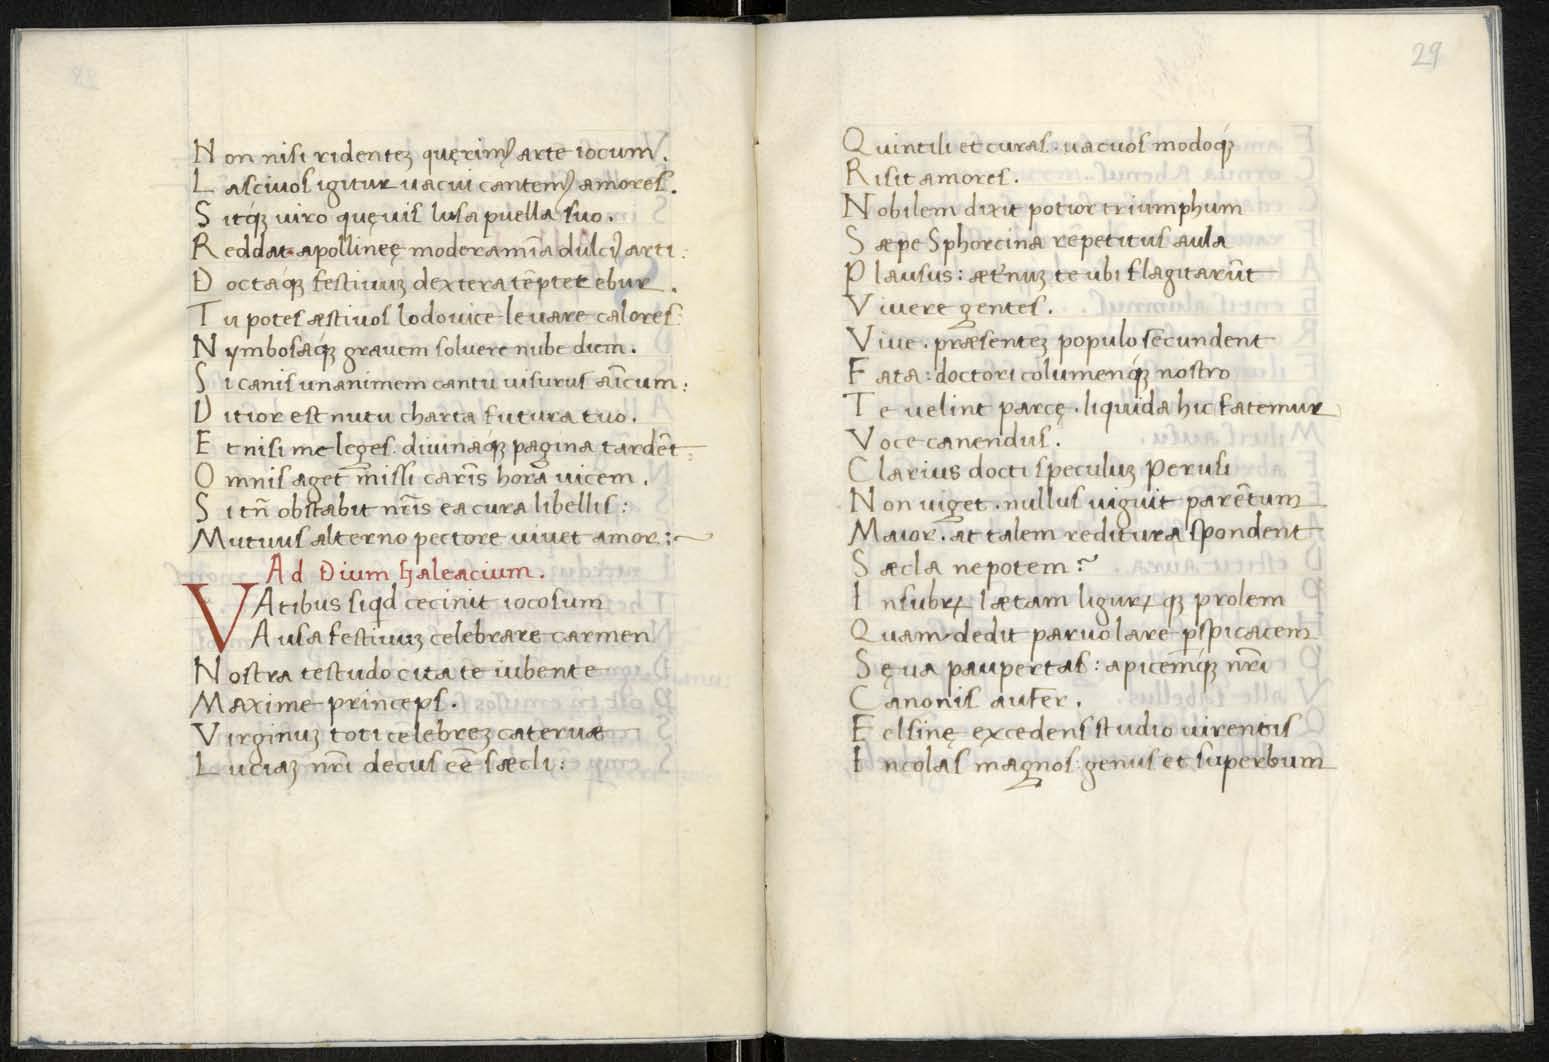 Non nisi ridenteʒ quęrimꝰ arte iocum.
Lasciuos igitur uacui cantemꝰ amores.
Sitqʒ uiro quęuis lusa puella suo.
Reddat apollineę moderamīa dulciꝰ arti:
Doctaqʒ festiuuʒ dextera tēptet ebur.
Tu potes æstiuos lodouice leuare calores:
Nymbosaqʒ grauem soluere nube diem.
Si canis unanimem cantu uisurus aīcum:
Ditior est nutu charta futura tuo.
Et nisi me leges. diuinaqʒ pagina tardēt:
Omnis aget missi carīs hora uicem.
Si tn̄ obstabit nr̄is ea cura libellis:
Mutuus alterno pectore uiuet amor:~
Ad Dium Galeacium.
VAtibus siqd cecinit iocosum
Ausa festiuuʒ celebrare carmen
Nostra testudo cita te iubente
Maxime princeps.
Virginuʒ toti celebreʒ cateruæ
Luciaʒ nr̄i decus cē̄ sæcli:
29
Quintili et curas. uacuos modoqʒ
Risit amores.
Nobilem dixit potior triumphum
Sæpe Sphorcina repetitus aula
Plausus: æt'nuʒ te ubi flagitarūt
Viuere gentes.
Viue. præsenteʒ populo secundent
Fata: doctori columenqʒ nostro
Te uelint parcę. liquida hic fatemur
Voce canendus.
Clarius docti speculuʒ Perusi
Non uiget. nullus uiguit parētum
Maior. at talem reditura spondent
Sæcla nepotem?
Insubrꝝ lætam ligurꝝ qʒ prolem
Quam dedit paruo lare ꝑspicacem
Sęua paupertas: apicemqʒ nr̄i
Canonis aufer.
Elsinę excedens studio uirentis
Incolas magnos: genus et superbum